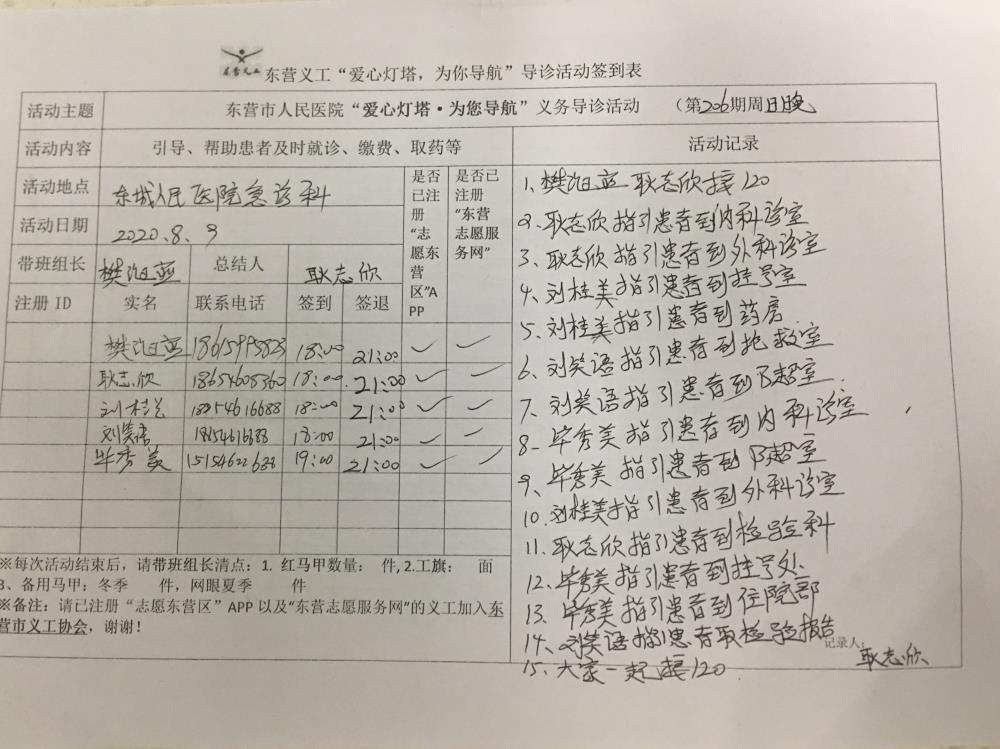 东营义工
东营义工“爱心灯塔，为你导航”导诊活动签到表
活动主题 东营市人民医院“爱心灯塔·为您导航”义务导诊活动 （第206期周日晚
活动内容 引导、帮助患者及时就诊、缴费、取药等 活动记录
活动地点 东城人民医院急诊科
活动日期 2020.8.9
是否已注册“志愿东营区”APP
是否已注册“东营志愿服务网”
带班组长 樊汝亚 总结人 耿志欣
注册 ID 实名 联系电话 签到 签退
18615995823 18:00 21:00
耿志欣 18654605360 18:00. 21:00
刘桂美 18854616688 18:00 21:00
刘笑语 18:00 21:00
毕秀美 15154622688 19:00 21:00
※每次活动结束后，请带班组长清点：1. 红马甲数量： 件, 2.工旗： 面
3、备用马甲：冬季 件，网眼夏季 件
※备注：请已注册“志愿东营区”APP 以及“东营志愿服务网”的义工加入东
营市义工协会，谢谢！
1、樊 耿志欣接120
2、耿志欣指引患者到内科诊室
3、耿志欣指引患者到外科诊室
4、刘桂美指引患者到挂号室
5、刘桂美指引患者到药房
6、刘笑语指引患者到抢救室
7、刘笑语指引患者到B超室.
8、毕秀美指引患者到内科诊室
9、毕秀美指引患者到B超室
10、刘桂美指引患者到外科诊室
11、耿志欣指引患者到检验科
12、毕秀美指引患者到挂号处.
13、毕秀美指引患者到住院部
14、刘笑语指引患者取检验报告
15、大家一起接120
记录人： 耿志欣